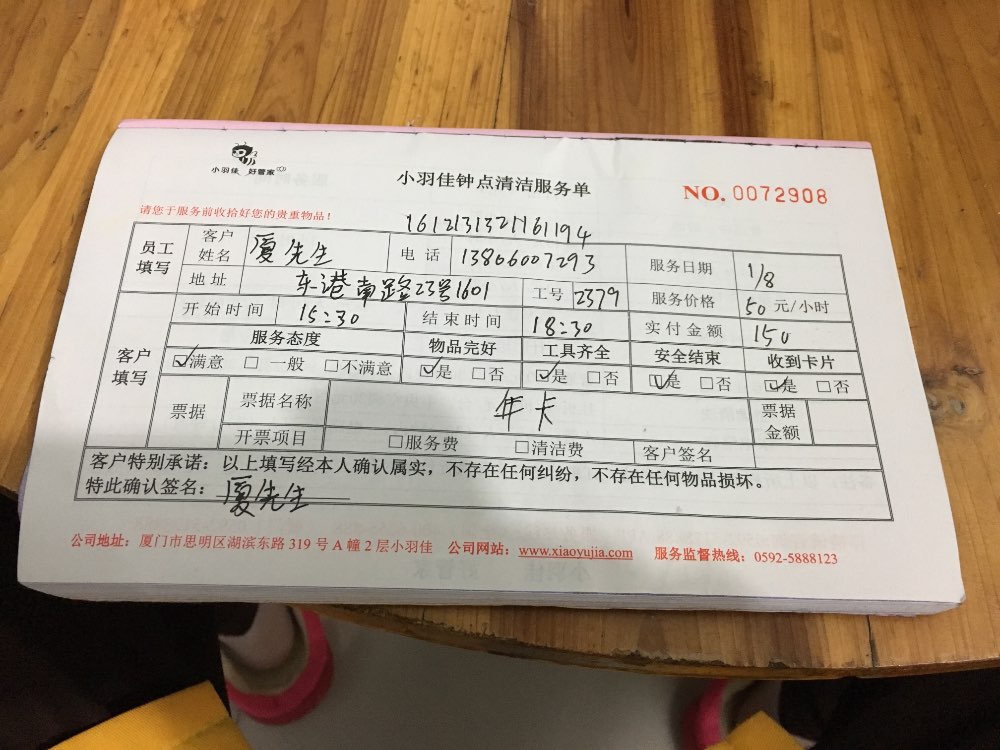 小羽佳 好管家
小羽佳钟点清洁服务单
NO. 0072908
请您于服务前收拾好您的贵重物品!
1612131321161194
员工填写 客户姓名 厦先生 电话 13806007293 服务日期 1/8
地址 东港南路23号1601 工号 2379 服务价格 50 元/小时
客户填写 开始时间 15:30 结束时间 18:30 实付金额 150
服务态度 物品完好 工具齐全 安全结束 收到卡片
☑满意 □一般 □不满意 ☑是 □否 ☑是 □否 ☑是 □否 ☑是 □否
票据 票据名称 年卡 票据金额
开票项目 □服务费 □清洁费 客户签名
客户特别承诺：以上填写经本人确认属实，不存在任何纠纷，不存在任何物品损坏。
特此确认签名：厦先生
公司地址：厦门市思明区湖滨东路 319 号 A 幢 2 层小羽佳 公司网站：www.xiaoyujia.com 服务监督热线：0592-5888123